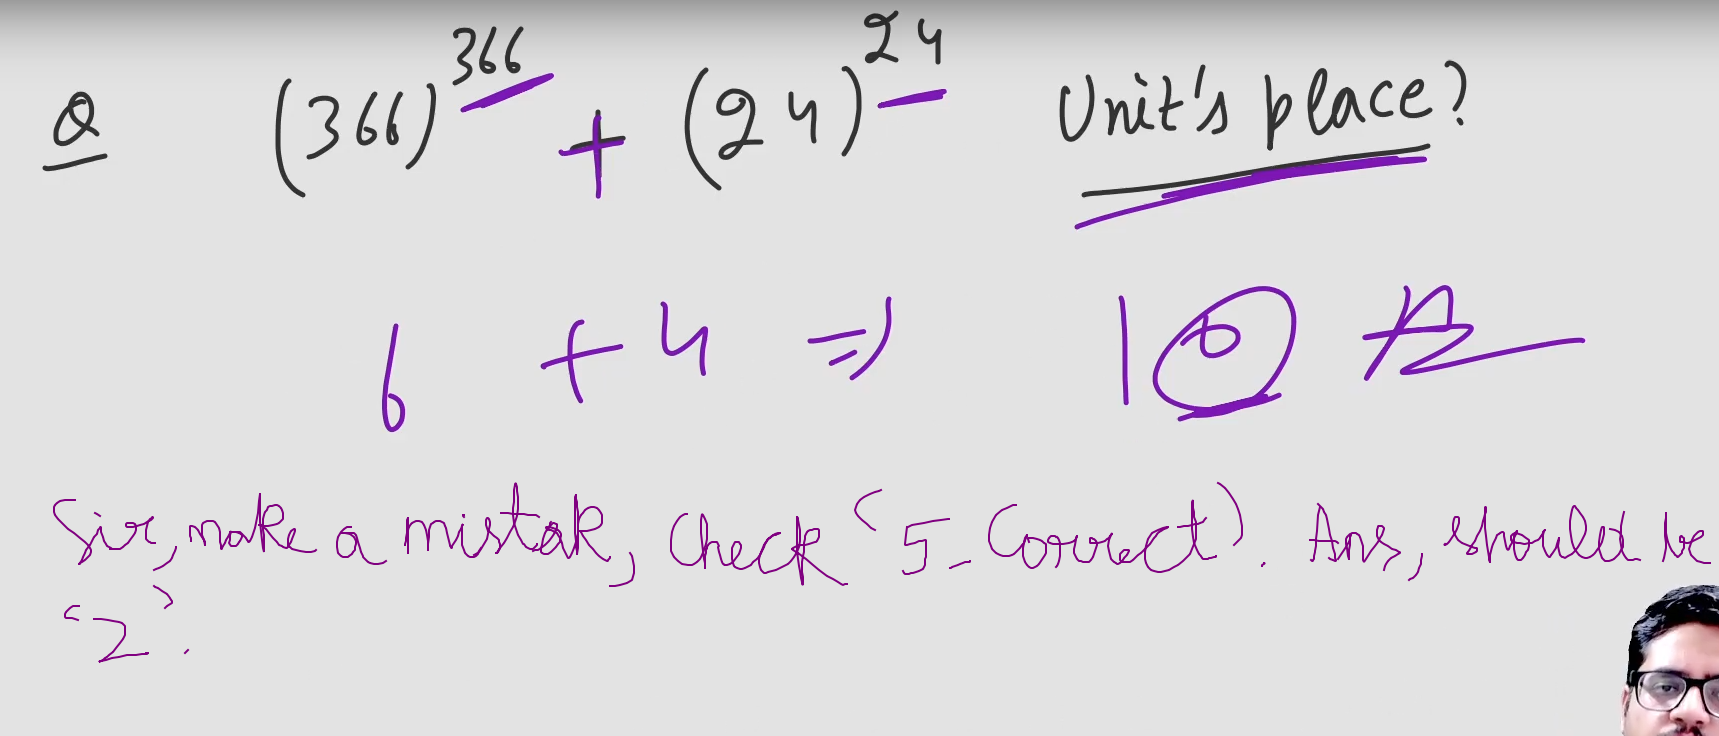 Q (366)^366 + (24)^24 Unit's place?
6 + 4 ⇒ 10
Sir, make a mistak, Check '5-Correct'. Ans, should be
'2'.